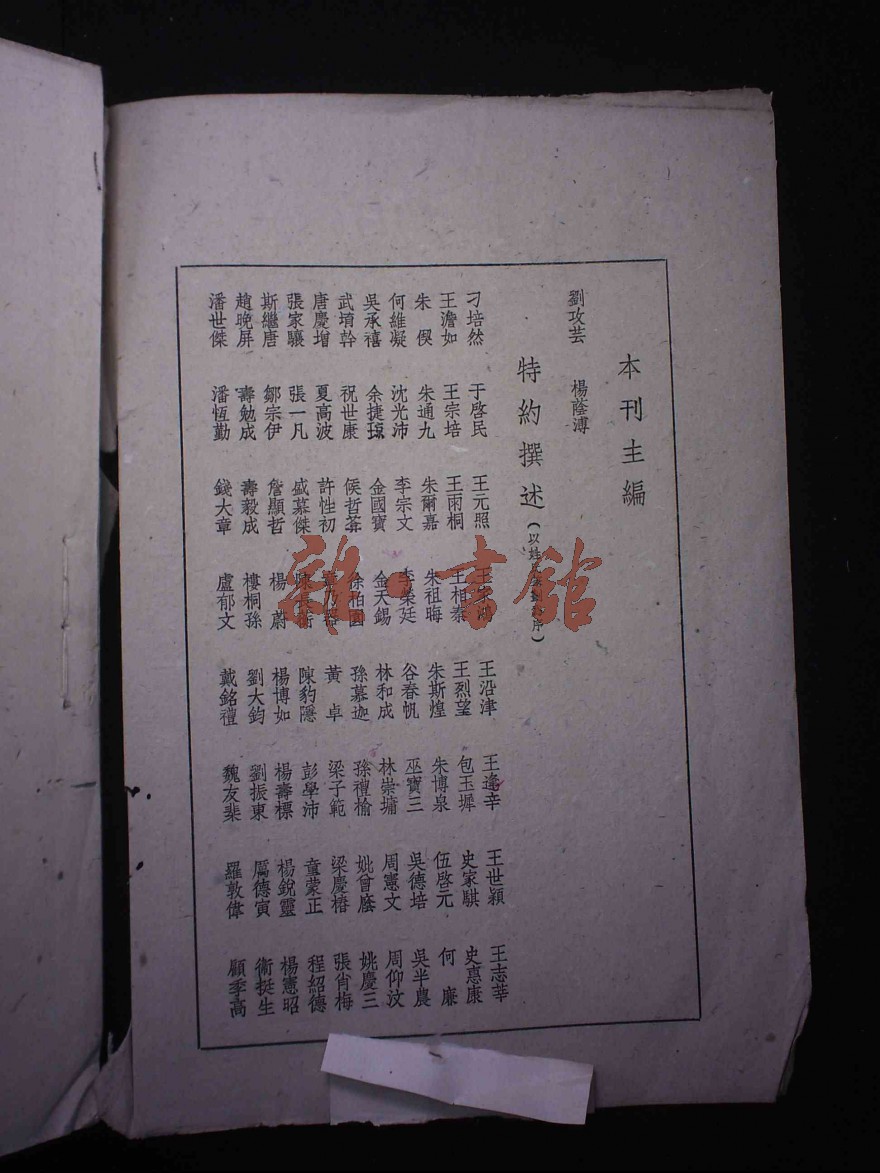 本刊主編
劉攻芸 楊蔭溥
特約撰述(以姓
刁培然 于啓民 王元照 王沿津 王逢辛 王世穎 王志莘
王澹如 王宗培 王雨桐 王相秦 王烈望 包玉墀 史家騏 史惠康
朱偰 朱通九 朱爾嘉 朱祖晦 朱斯煌 朱博泉 伍啓元 何廉
何維凝 沈光沛 李宗文 李榮廷 谷春帆 巫寶三 吳德培 吳半農
吳承禧 余捷瓊 金國寶 金天錫 林和成 林崇墉 周憲文 周仰汶
武堉幹 祝世康 侯哲葊 徐柏園 孫慕迦 孫禮榆 姚曾廕 姚慶三
唐慶增 夏高波 許性初 章乃器 黃卓 梁子範 梁慶椿 張肖梅
張家驤 張一凡 盛慕傑 陳長蘅 陳豹隱 彭學沛 童蒙正 程紹德
斯繼唐 鄒宗伊 詹顯哲 楊蔚 楊博如 楊壽標 楊銳靈 楊憲昭
趙晚屏 壽勉成 壽毅成 樓桐孫 劉大鈞 劉振東 厲德寅 衛挺生
潘世傑 潘恆勤 錢大章 盧郁文 戴銘禮 魏友棐 羅敦偉 顧季高
雜·書館